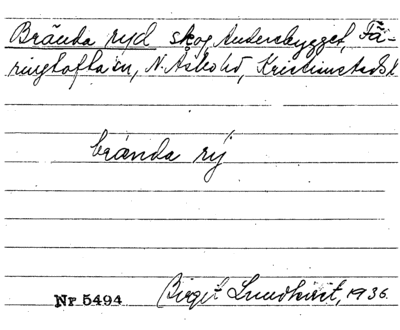 Brända ryd skog Andersbygget, Fä-
ringtofta sn, N. Åsbo hd, Kristianstads l.
brända rý
Nr 5494 Birgit Lundkvist, 1936.